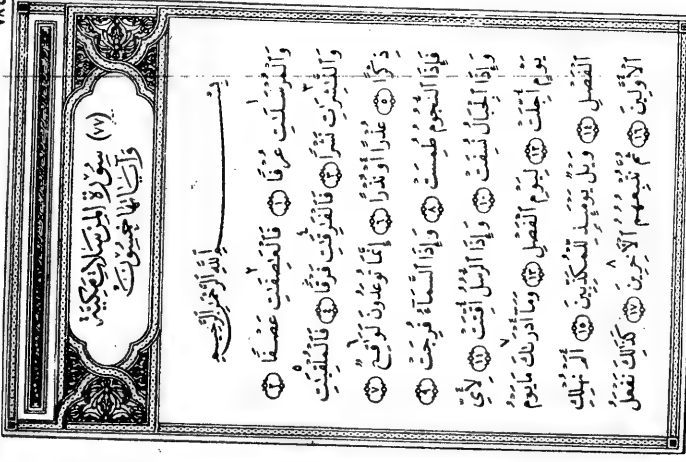 (٧٧) سورة المرسلات مكية
وآياتها خمسون
بسم الله الرحمن الرحيم
وَٱلْمُرْسَلَٰتِ عُرْفًا ١ فَٱلْعَٰصِفَٰتِ عَصْفًا ٢
وَٱلنَّٰشِرَٰتِ نَشْرًا ٣ فَٱلْفَٰرِقَٰتِ فَرْقًا ٤ فَٱلْمُلْقِيَٰتِ
ذِكْرًا ٥ عُذْرًا أَوْ نُذْرًا ٦ إِنَّمَا تُوعَدُونَ لَوَٰقِعٌ ٧
فَإِذَا ٱلنُّجُومُ طُمِسَتْ ٨ وَإِذَا ٱلسَّمَآءُ فُرِجَتْ ٩
وَإِذَا ٱلْجِبَالُ نُسِفَتْ ١٠ وَإِذَا ٱلرُّسُلُ أُقِّتَتْ ١١ لِأَىِّ
يَوْمٍ أُجِّلَتْ ١٢ لِيَوْمِ ٱلْفَصْلِ ١٣ وَمَآ أَدْرَىٰكَ مَا يَوْمُ
ٱلْفَصْلِ ١٤ وَيْلٌ يَوْمَئِذٍ لِّلْمُكَذِّبِينَ ١٥ أَلَمْ نُهْلِكِ
ٱلْأَوَّلِينَ ١٦ ثُمَّ نُتْبِعُهُمُ ٱلْأَخِرِينَ ١٧ كَذَٰلِكَ نَفْعَلُ